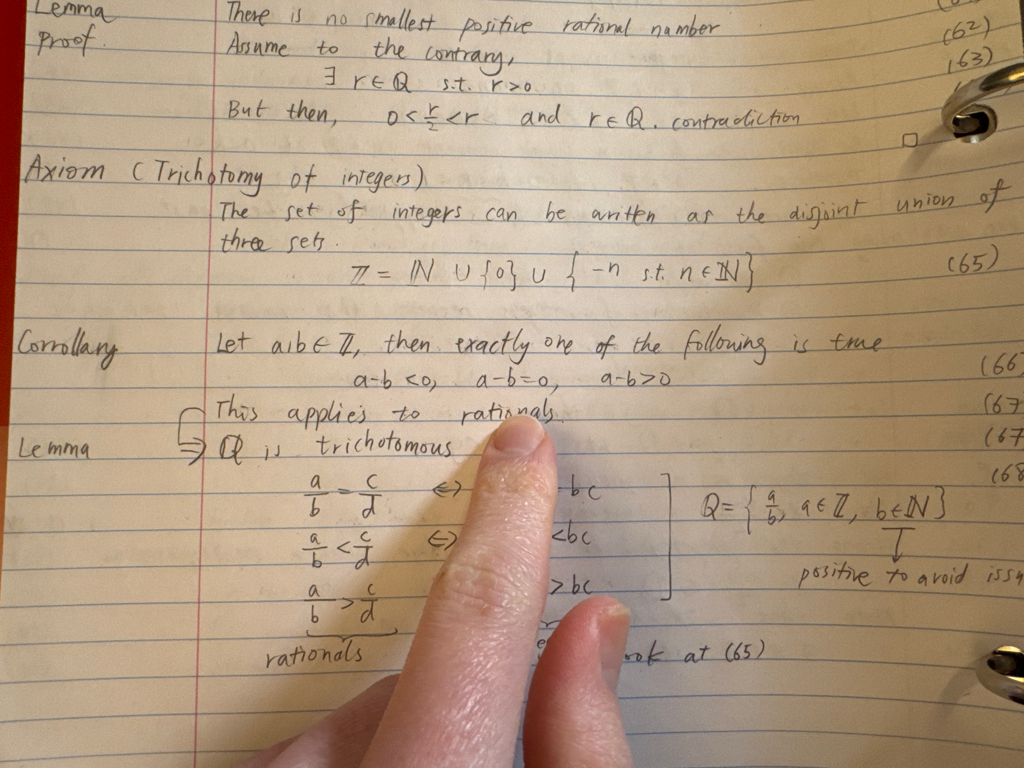 Lemma There is no smallest positive rational number
Proof. Assume to the contrary, (62)
∃ r ∈ ℚ s.t. r>0 (63)
But then, 0 < r/2 < r and r ∈ ℚ. contradiction
□
Axiom (Trichotomy of integers)
The set of integers can be written as the disjoint union of
three sets.
ℤ = ℕ ∪ {0} ∪ { -n s.t. n ∈ ℕ } (65)
Corrollary Let a,b ∈ ℤ, then exactly one of the following is true
a-b <0, a-b=0, a-b>0 (66
This applies to rationals (67
Lemma ⇒ ℚ is trichotomous (67
a/b = c/d ⇔ bc (68
ℚ = { a/b, a ∈ ℤ, b ∈ ℕ }
a/b < c/d ⇔ <bc
positive to avoid issu
a/b > c/d >bc
rationals look at (65)